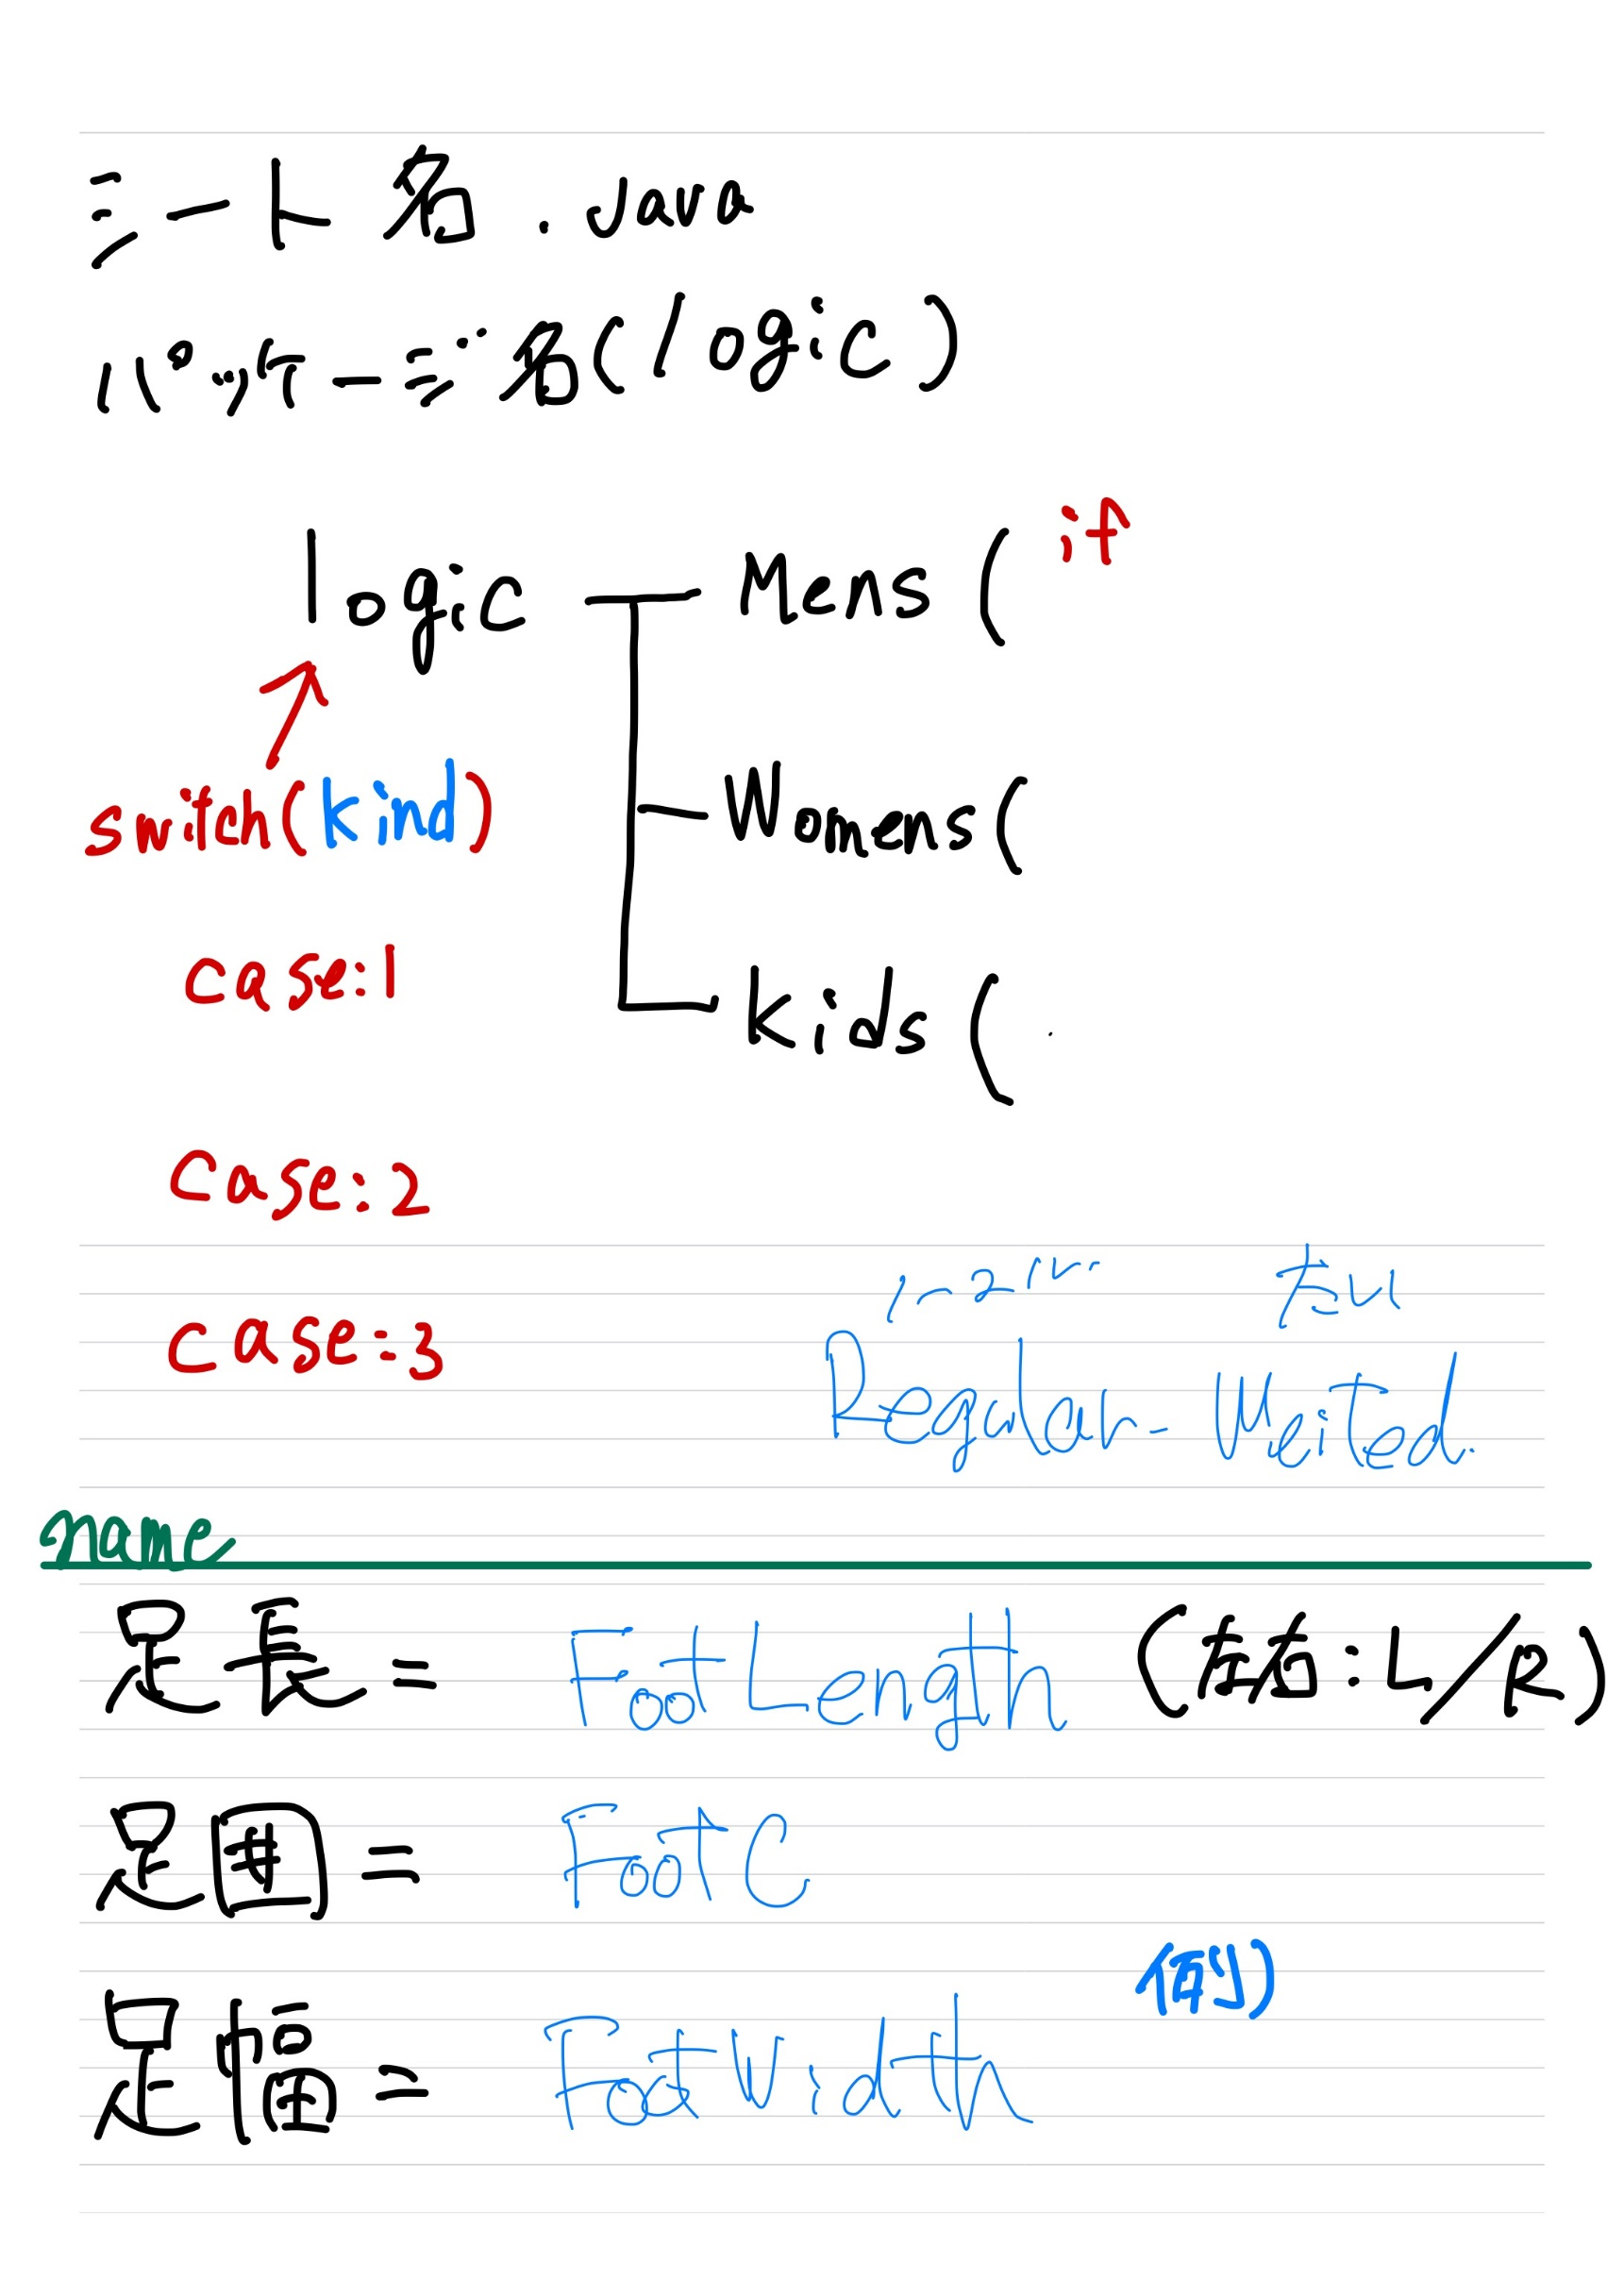 シート名.java
パッケージ名(logic)
logic
Mens( if
Womens(
Kids(
switch(kind)
case:1
case:2
case:3
Regular-
name
足長= FootLength (左右:L/R)
足囲= FootC
例)
足幅= FootWidth